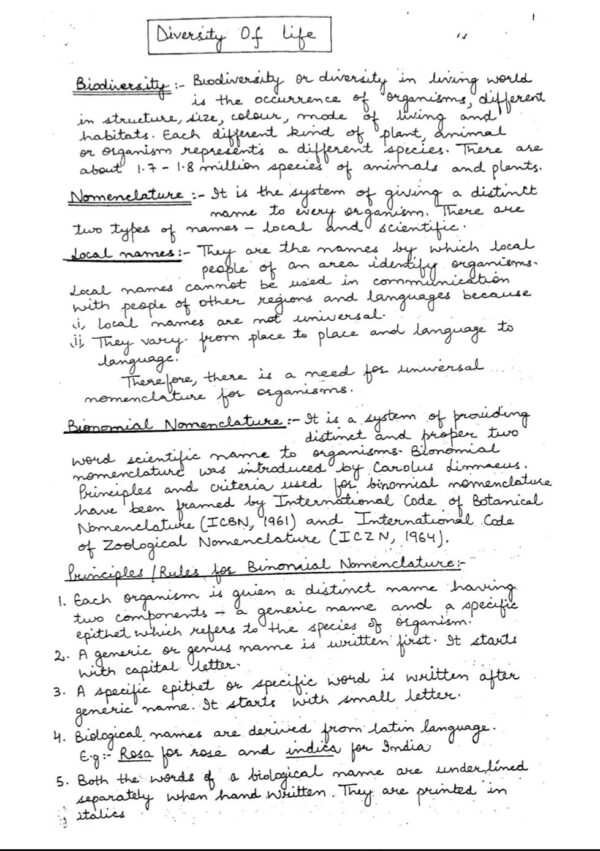 1
Diversity Of Life
Biodiversity :- Biodiversity or diversity in living world
is the occurrence of organisms, different
in structure, size, colour, mode of living and
habitats. Each different kind of plant, animal
or organism represents a different species. There are
about 1.7 - 1.8 million species of animals and plants.
Nomenclature :- It is the system of giving a distinct
name to every organism. There are
two types of names - local and scientific.
Local names :- They are the names by which local
people of an area identify organisms.
Local names cannot be used in communication
with people of other regions and languages because
i, Local names are not universal.
ii, They vary from place to place and language to
language.
Therefore, there is a need for universal
nomenclature for organisms.
Bionomial Nomenclature :- It is a system of providing
distinct and proper two
word scientific name to organisms. Bionomial
nomenclature was introduced by Carolus Linnaeus.
Principles and criteria used for binomial nomenclature
have been framed by International Code of Botanical
Nomenclature (ICBN, 1961) and International Code
of Zoological Nomenclature (ICZN, 1964).
Principles / Rules for Binomial Nomenclature :-
1. Each organism is given a distinct name having
two components - a generic name and a specific
epithet which refers to the species of organism.
2. A generic or genus name is written first. It starts
with capital letter.
3. A specific epithet or specific word is written after
generic name. It starts with small letter.
4. Biological names are derived from latin language.
E.g :- Rosa for rose and indica for India
5. Both the words of a biological name are underlined
separately when hand written. They are printed in
italics